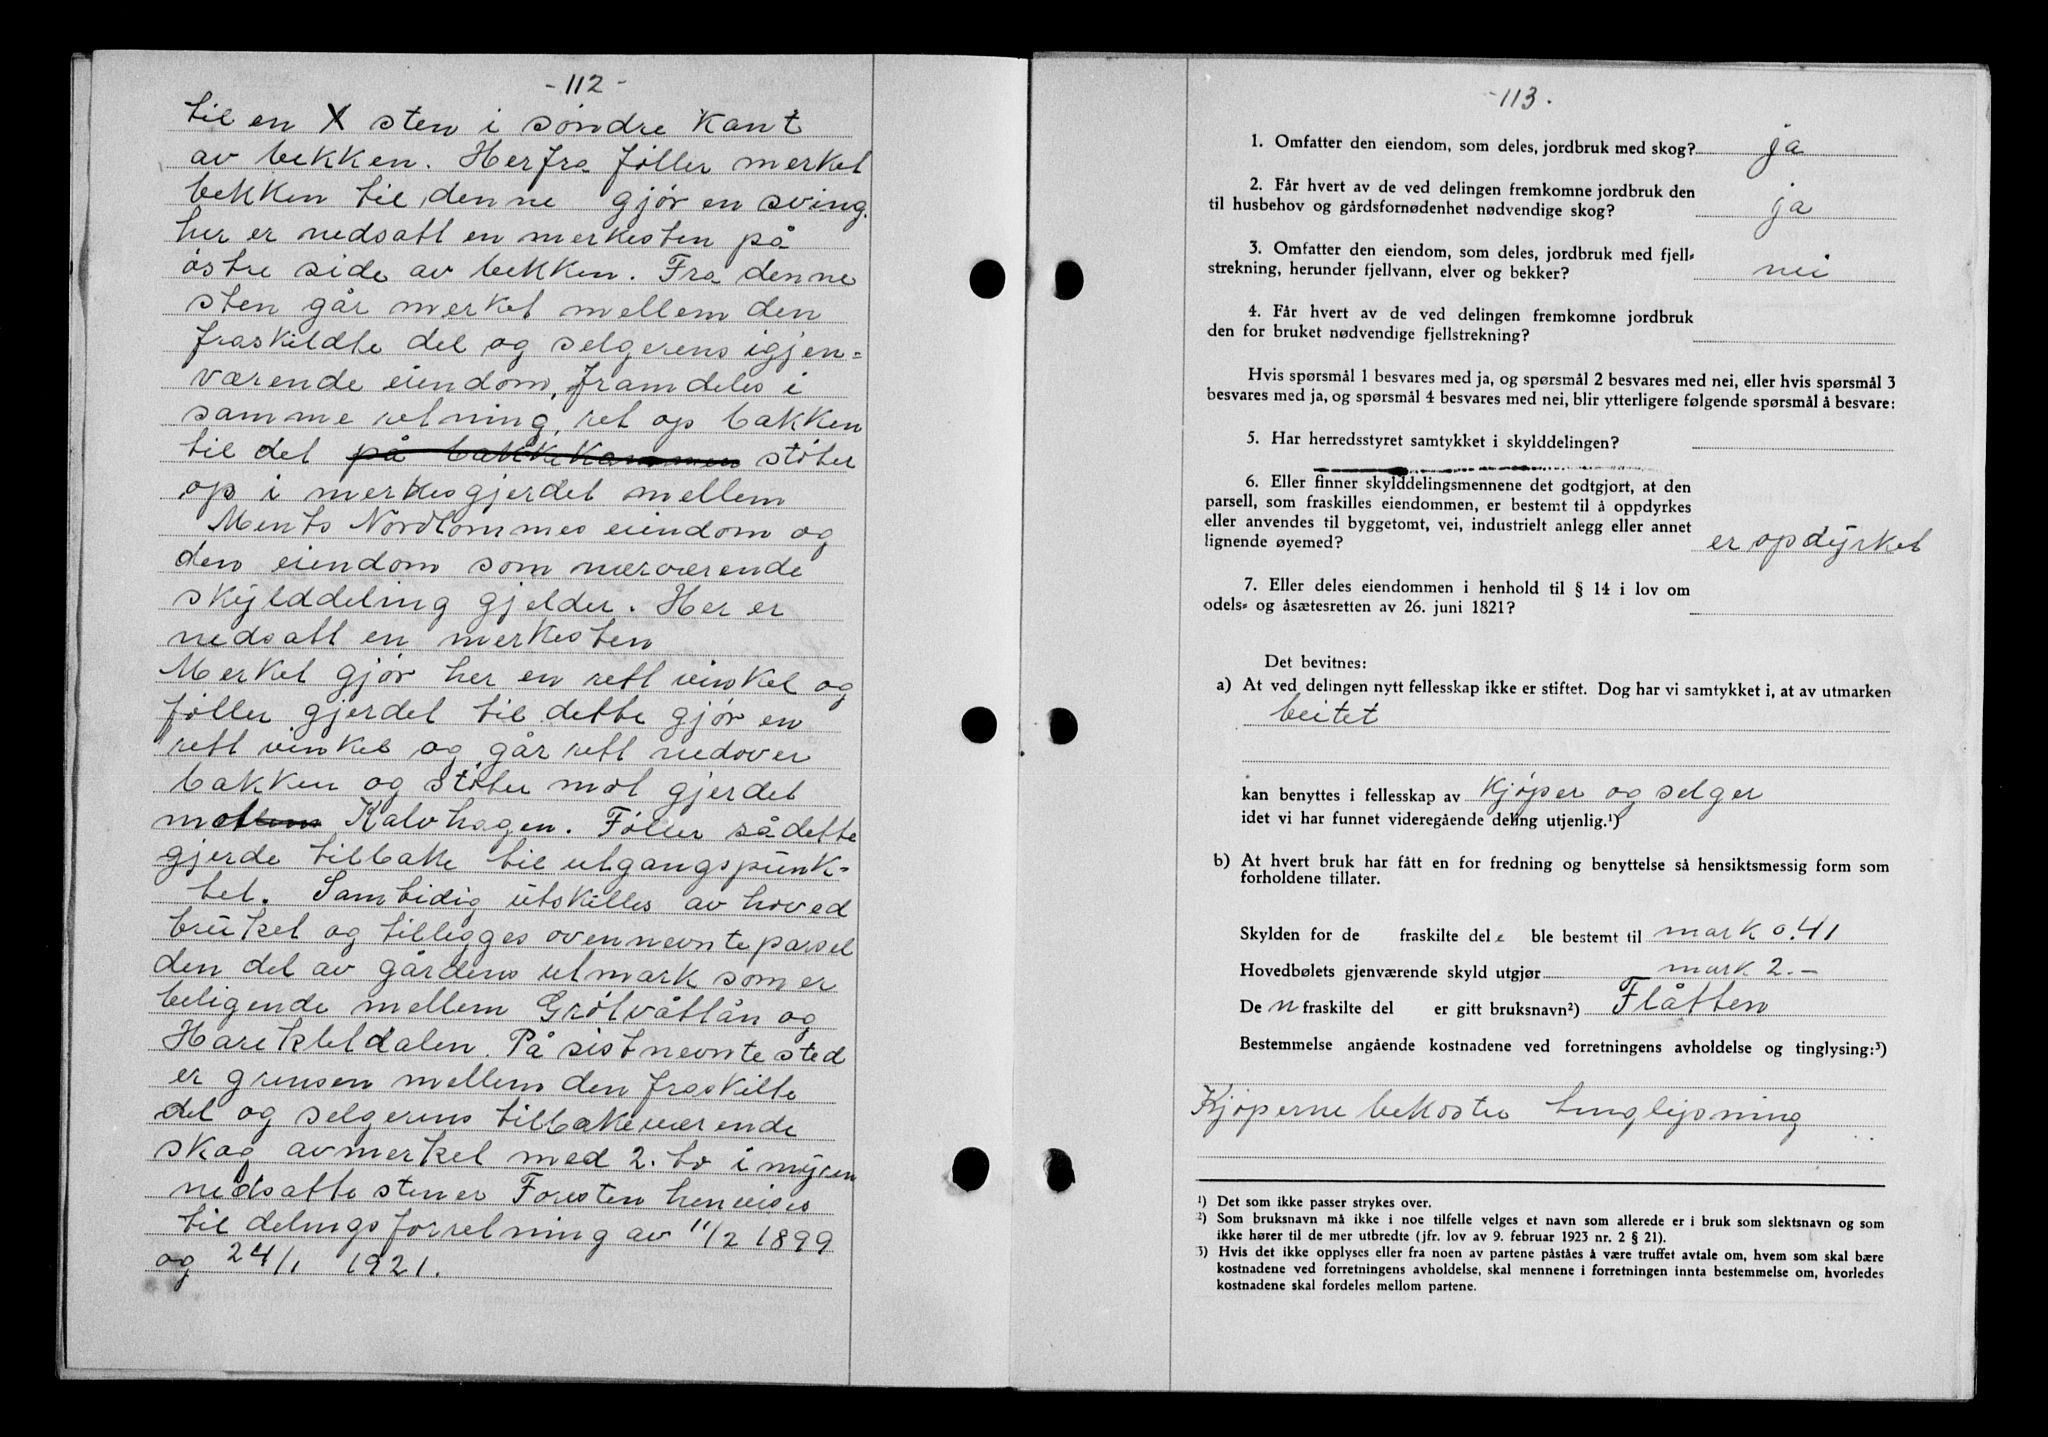 - 112 -
til en X sten i søndre kant
av bekken. Herfra føller merket
bekken til denne gjør en sving.
her er nedsatt en merkesten på
østre side av bekken. Fra denne
sten går merket mellem den
fraskildte del og selgerens igjen=
værende eiendom, framdeles i
samme retning, ret op bakken
til det på bakkekammen støter
op i merkesgjerdet mellem
Ments Nordtømmes eiendom og
den eiendom som nærværende
skylddeling gjelder. Her er
nedsatt en merkesten
Merket gjør her en rett vinkel og
føller gjerdet til dette gjør en
rett vinkel og går rett nedover
bakken og støter mot gjerdet
mellem Kalvhagen. Føller så dette
gjerde tilbake til utgangspunk-
tet. Samtidig utskilles av hoved
bruket og tillegges ovennevnte parsel
den del av gårdens utmark som er
beligende mellem Grøtvåttån og
Harekletdalen. På sistnevnte sted
er grensen mellem den fraskilte
del og selgerens tilbakeværende
skog avmerket med 2. to i myren
nedsatte stener Foresten henvises
til delingsforretning av 11/2 1899
og 24/1 1921.
- 113.
1. Omfatter den eiendom, som deles, jordbruk med skog? ja
2. Får hvert av de ved delingen fremkomne jordbruk den
til husbehov og gårdsfornødenhet nødvendige skog? ja
3. Omfatter den eiendom, som deles, jordbruk med fjell=
strekning, herunder fjellvann, elver og bekker? nei
4. Får hvert av de ved delingen fremkomne jordbruk
den for bruket nødvendige fjellstrekning?
Hvis spørsmål 1 besvares med ja, og spørsmål 2 besvares med nei, eller hvis spørsmål 3
besvares med ja, og spørsmål 4 besvares med nei, blir ytterligere følgende spørsmål å besvare:
5. Har herredsstyret samtykket i skylddelingen?
6. Eller finner skylddelingsmennene det godtgjort, at den
parsell, som fraskilles eiendommen, er bestemt til å oppdyrkes
eller anvendes til byggetomt, vei, industrielt anlegg eller annet
lignende øyemed? er opdyrket
7. Eller deles eiendommen i henhold til § 14 i lov om
odels= og åsætesretten av 26. juni 1821?
Det bevitnes:
a) At ved delingen nytt fellesskap ikke er stiftet. Dog har vi samtykket i, at av utmarken
beitet
kan benyttes i fellesskap av Kjøper og selger
idet vi har funnet videregående deling utjenlig.¹)
b) At hvert bruk har fått en for fredning og benyttelse så hensiktsmessig form som
forholdene tillater.
Skylden for de fraskilte dele ble bestemt til mark 0.41
Hovedbølets gjenværende skyld utgjør mark 2.-
De n fraskilte del er gitt bruksnavn²) Flåtten
Bestemmelse angående kostnadene ved forretningens avholdelse og tinglysing:³)
Kjøperne bekoster tinglysning
¹) Det som ikke passer strykes over.
²) Som bruksnavn må ikke i noe tilfelle velges et navn som allerede er i bruk som slektsnavn og som
ikke hører til de mer utbredte (jfr. lov av 9. februar 1923 nr. 2 § 21).
³) Hvis det ikke opplyses eller fra noen av partene påstås å være truffet avtale om, hvem som skal bære
kostnadene ved forretningens avholdelse, skal mennene i forretningen innta bestemmelse om, hvorledes
kostnadene skal fordeles mellom partene.